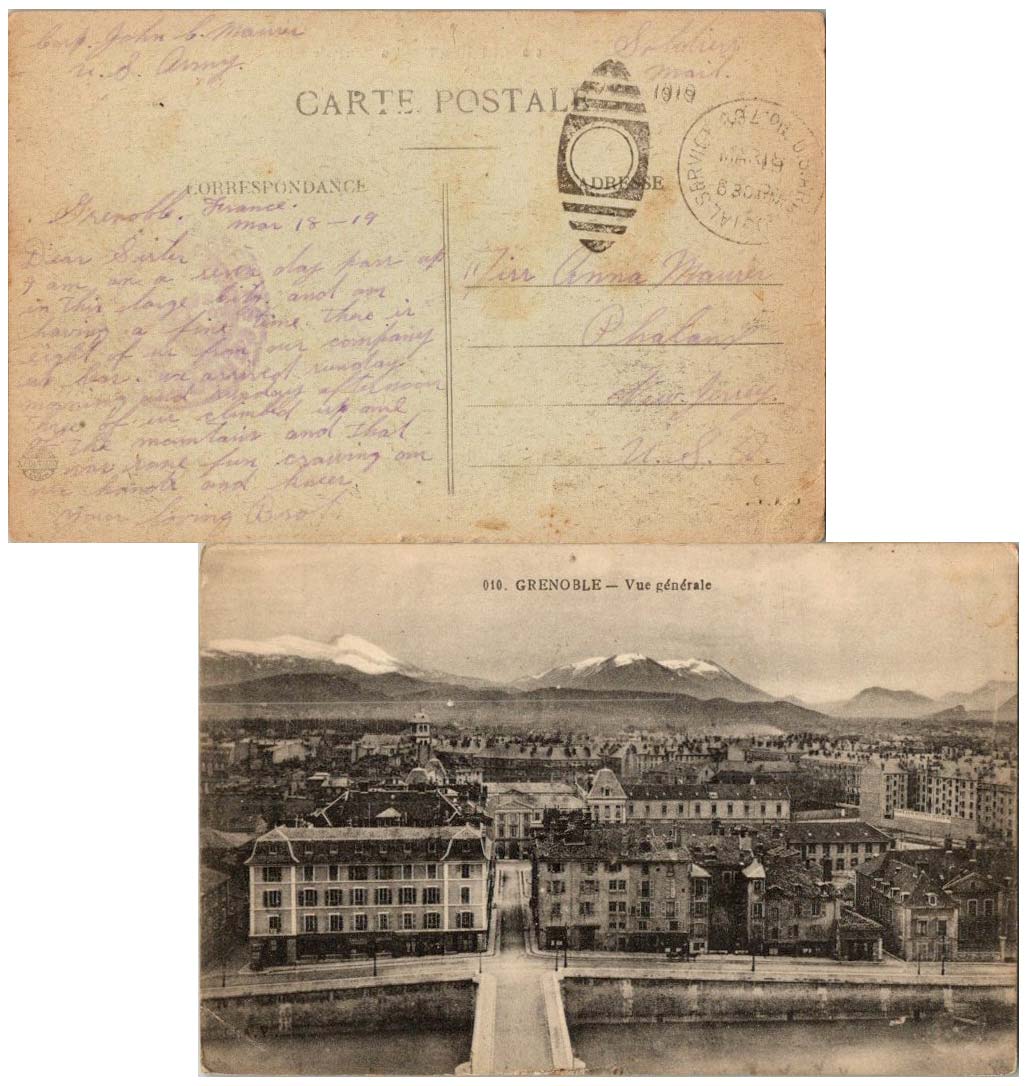 Corp. John C. Maurer
U. S. Army.
Soldiers
Mail.
CARTE POSTALE
1919
MAR 19
6 30 PM
CORRESPONDANCE
ADRESSE
Grenoble. France.
Mar 18-19
Dear Sister
I am on a seven day pass up
in this large city. and am
having a fine time. there is
eight of us from our company
we arrived sunday
morning and sundays afternoon
of us climbed up one
of the mountain and that
was some fun crawling on
our hands and knees.
Your loving Brot.
Miss Anna Maurer
Phalanx
New Jersey.
U. S. A.
010. GRENOBLE — Vue générale